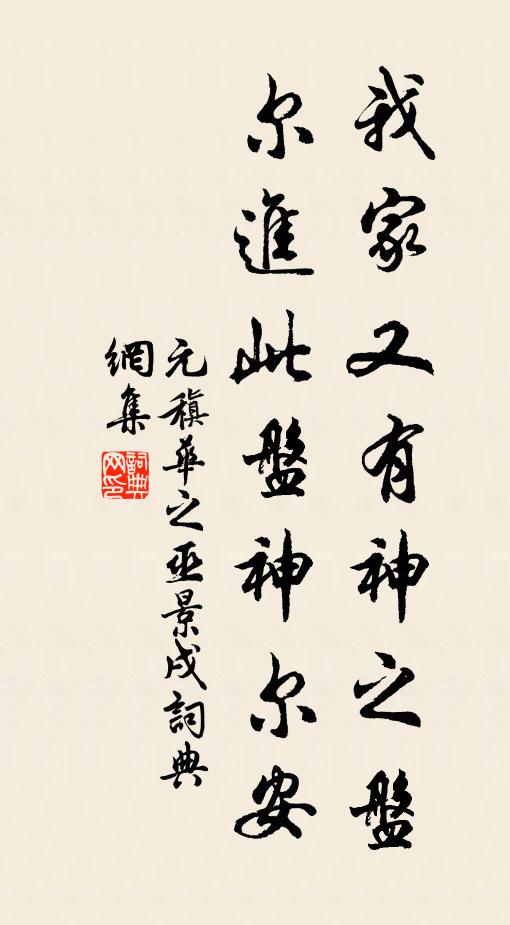 我家又有神之盤
尔進此盤神尔安
元稹華之巫景戌詞典
網集
詞典網印